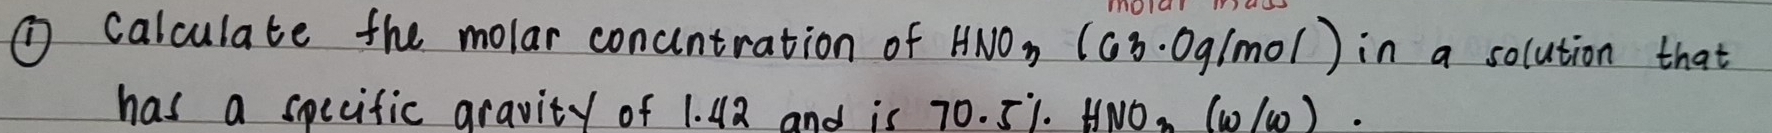 molar mass
① Calculate the molar concentration of HNO₃ (63.0g/mol) in a solution that
has a specific gravity of 1.42 and is 70.5%. HNO₃ (w/w).